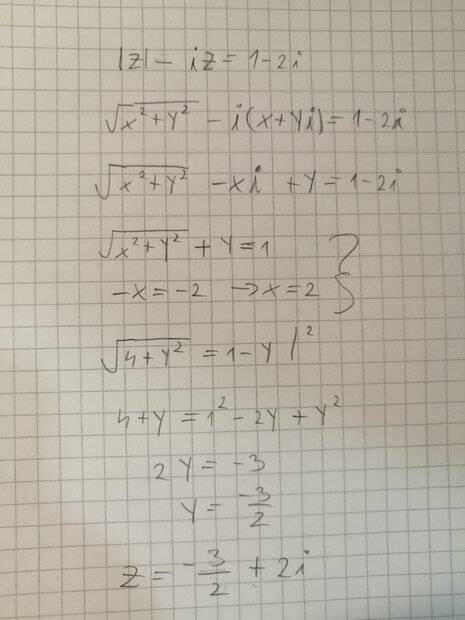 |z| - iz = 1 - 2i
√(x² + y²) - i(x + yi) = 1 - 2i
√(x² + y²) - xi + y = 1 - 2i
√(x² + y²) + y = 1
-x = -2 → x = 2 }
√(4 + y²) = 1 - y /²
4 + y = 1² - 2y + y²
2y = -3
y = -3/2
z = -3/2 + 2i